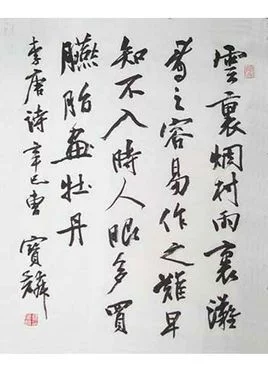 雲裏烟村雨裏灘
看之容易作之難早
知不入時人眼多買
臙脂畫牡丹
李唐詩辛巳曹寶麟